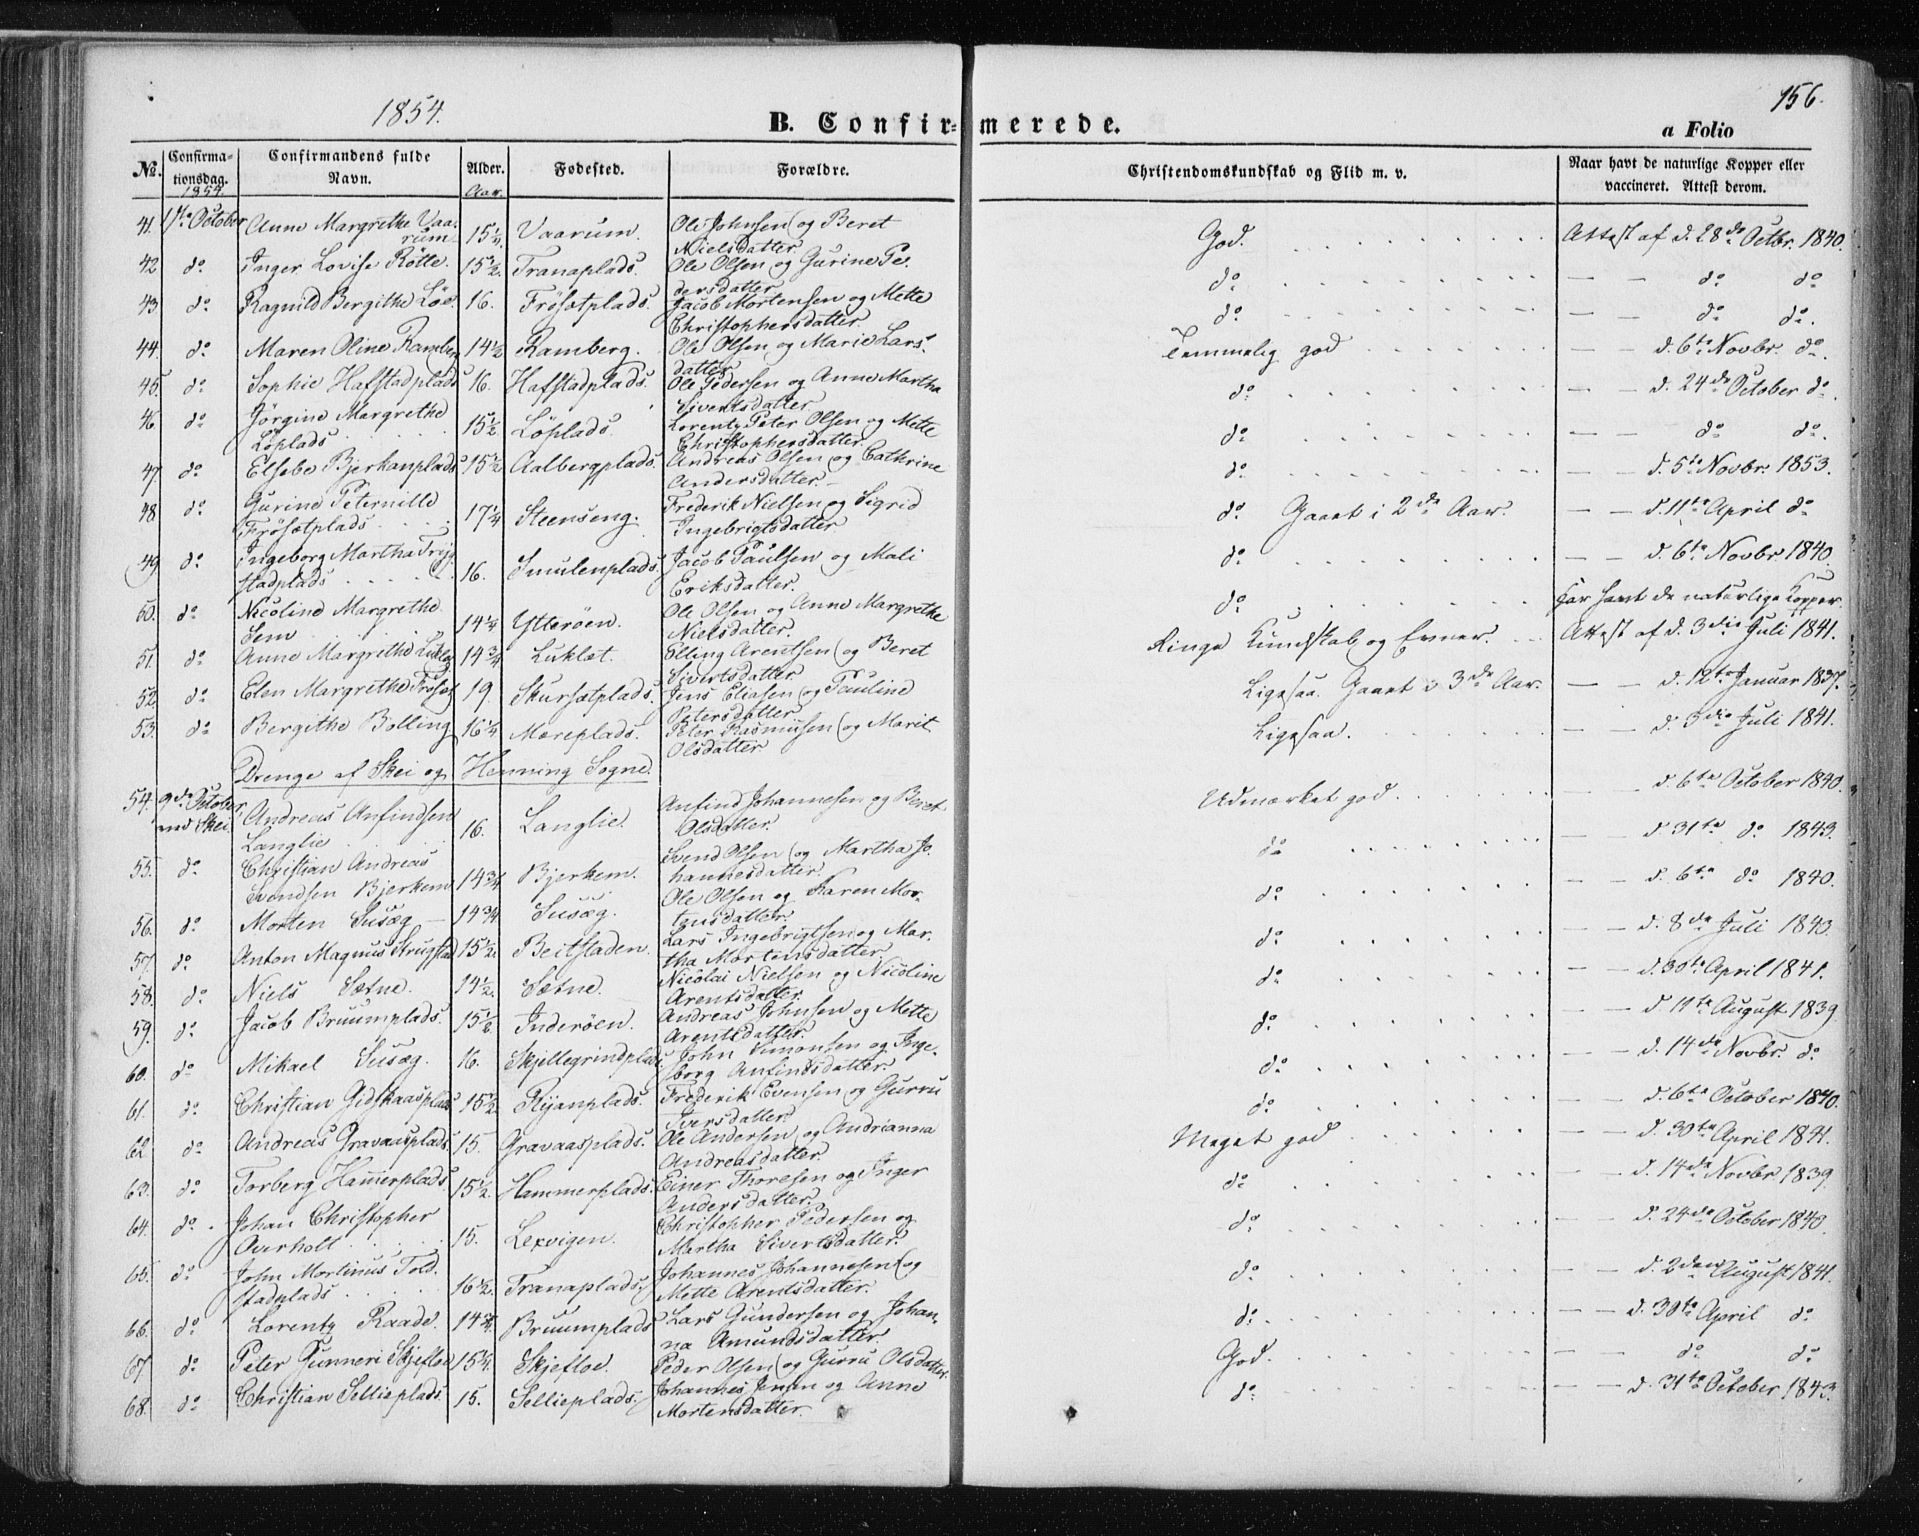 1854.
156.
B. Confirmerede.
a Folio
No. Confirmationsdag. 1854. Confirmandens fulde Navn. Alder. Aar. Fødested. Forældre. Christendomskundskab og Flid m. v. Naar havt de naturlige Kopper eller vaccineret. Attest derom.
41. 1ste October Anne Margrethe Vaarum. 15 1/2. Vaarum. Ole Johnsen og Beret Nielsdatter God. Attest af d. 28de Octbr. 1840.
42 do Inger Lovise Røtte. 15 1/2. Tranaplads. Ole Olsen og Gurine Pedersdatter do. — — do do
43 do Ragnild Bergithe Løe. 16. Frøsetplads. Jacob Mortensen og Mette Christophersdatter. do — — do do.
44. do Maren Oline Ramberg 14 1/2 Ramberg. Ole Olsen og Marie Larsdatter Temmelig god — — d. 6te Novbr. do.
45. do Sophie Hafstadplads 16. Hafstadplads. Ole Pedersen og Anne Martha Sivertsdatter do — — d. 24de October do.
46 do Jørgine Margrethe Løplads 15 1/2 Løplads. Lorentz Peter Olsen og Mette Christophersdatter. do — — do do.
47. do Elsebe Bjerkanplads 15 1/2 Aalbergplads. Andreas Olsen og Cathrine Andersdatter. do — — d. 5te Novbr. 1853.
48 do Gurine Peternille Frøsetplads 17 1/4 Steenseng. Frederik Nielsen og Sigrid Ingebrigtsdatter do. Gaaet i 2de Aar. — — d. 11te April do
49 do Ingeborg Martha Tryggstadplads 16. Smulenplads. Jacob Paulsen og Mali Eriksdatter. do — — d. 6te Novbr. 1840.
50. do Nicoline Margrethe Sem 14 1/4 Ytterøen. Ole Olsen og Anne Margrethe Nielsdatter. do har havt de naturlige Kopper.
51. do Anne Margrethe Luklet 14 3/4 Luklet. Elling Arentsen og Beret Sivertsdatter Ringe Kundskab og Evner. Attest af d. 3die Juli 1841.
52. do Elen Margrethe Frøset 19. Skursetplads. Jens Eliasen og Pauline Petersdatter Ligesaa. Gaaet i 3de Aar. — — d. 12te Januar 1837.
53. do Bergithe Bolling 16 1/4 Mæreplads. Peter Rasmusen og Marit Olsdatter Ligesaa. — — d. 3die Juli 1841.
Drenge af Skei og Henning Sogne.
54. 9de October ved Skei. Andreas Anfindsen Langlie 16. Langlie. Anfind Johannesen og Beret Olsdatter. Udmærket god. — — d. 6te October 1840.
55. do Christian Andreas Svendsen Bjerkem 14 3/4 Bjerkem. Svend Olsen og Martha Johannesdatter. do — — d. 31te do 1843.
56. do Morten Susæg 14 3/4 Susæg. Ole Olsen og Karen Mortensdatter. do. — — d. 6te do 1840.
57. do Anton Magnus Strugstad 15 1/2. Beitstaden. Lars Ingebrigtsen og Martha Mortensdatter. do — — d. 8de Juli 1840.
58. do Niels Sætne. 14 1/2. Sætne. Nicolai Nielsen og Nicoline Arentsdatter. do — — d. 30te April 1841.
59. do Jacob Bruumplads. 15 1/2 Inderøen. Andreas Johnsen og Mette Arentsdatter. do — — d. 11te August 1839
60. do Mikael Susæg. 16. Skjellegrindplads John Simonsen og Ingeborg Anfindsdatter do. — — d. 14de Novbr. do
61. do Christian Gidskaasplads 15 1/2 Rijanplads. Frederik Evensen og Gurru Iversdatter. do — — d. 6te October 1840.
62 do Andreas Gravaasplads. 15. Gravaasplads. Ole Andersen og Andrianna Andreasdatter. Meget god — — d. 30te April 1841.
63. do Torberg Hammerplads. 15 1/2. Hammerplads. Einer Thoresen og Inger Andersdatter. do — — d. 14de Novbr. 1839.
64. do. Johan Christopher Overholt 15. Lexvigen. Christopher Pedersen og Martha Sivertsdatter. do — — d. 24de October 1840.
65. do John Martinus Toldstadplads 16 1/2. Tranaplads. Johannes Johannesen og Mette Arentsdatter. do — — d. 2den August 1841.
66. do Lorentz Raade. 14 3/4. Bruumplads Lars Gundersen og Johanna Amundsdatter. do. — — d. 30te April do
67 do Peter Gunneri Skjefloe 15 1/4. Skjefloe. Peder Olsen og Gurru Olsdatter. God. — — do do
68. do Christian Sellieplads. 15. Sellieplads. Johannes Jensen og Anne Mortensdatter. do — — d. 31te October 1843.